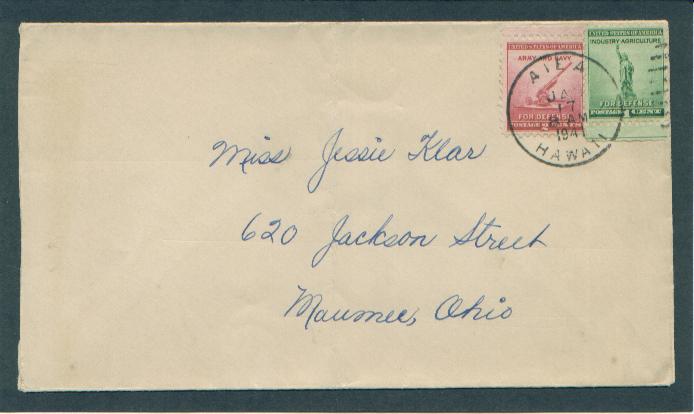 UNITED STATES OF AMERICA
ARMY AND NAVY
FOR DEFENSE
POSTAGE 2 CENTS
UNITED STATES OF AMERICA
INDUSTRY AGRICULTURE
FOR DEFENSE
POSTAGE 1 CENT
AIEA
JA
17
AM
1941
HAWAII
Miss Jessie Klar
620 Jackson Street
Maumee, Ohio